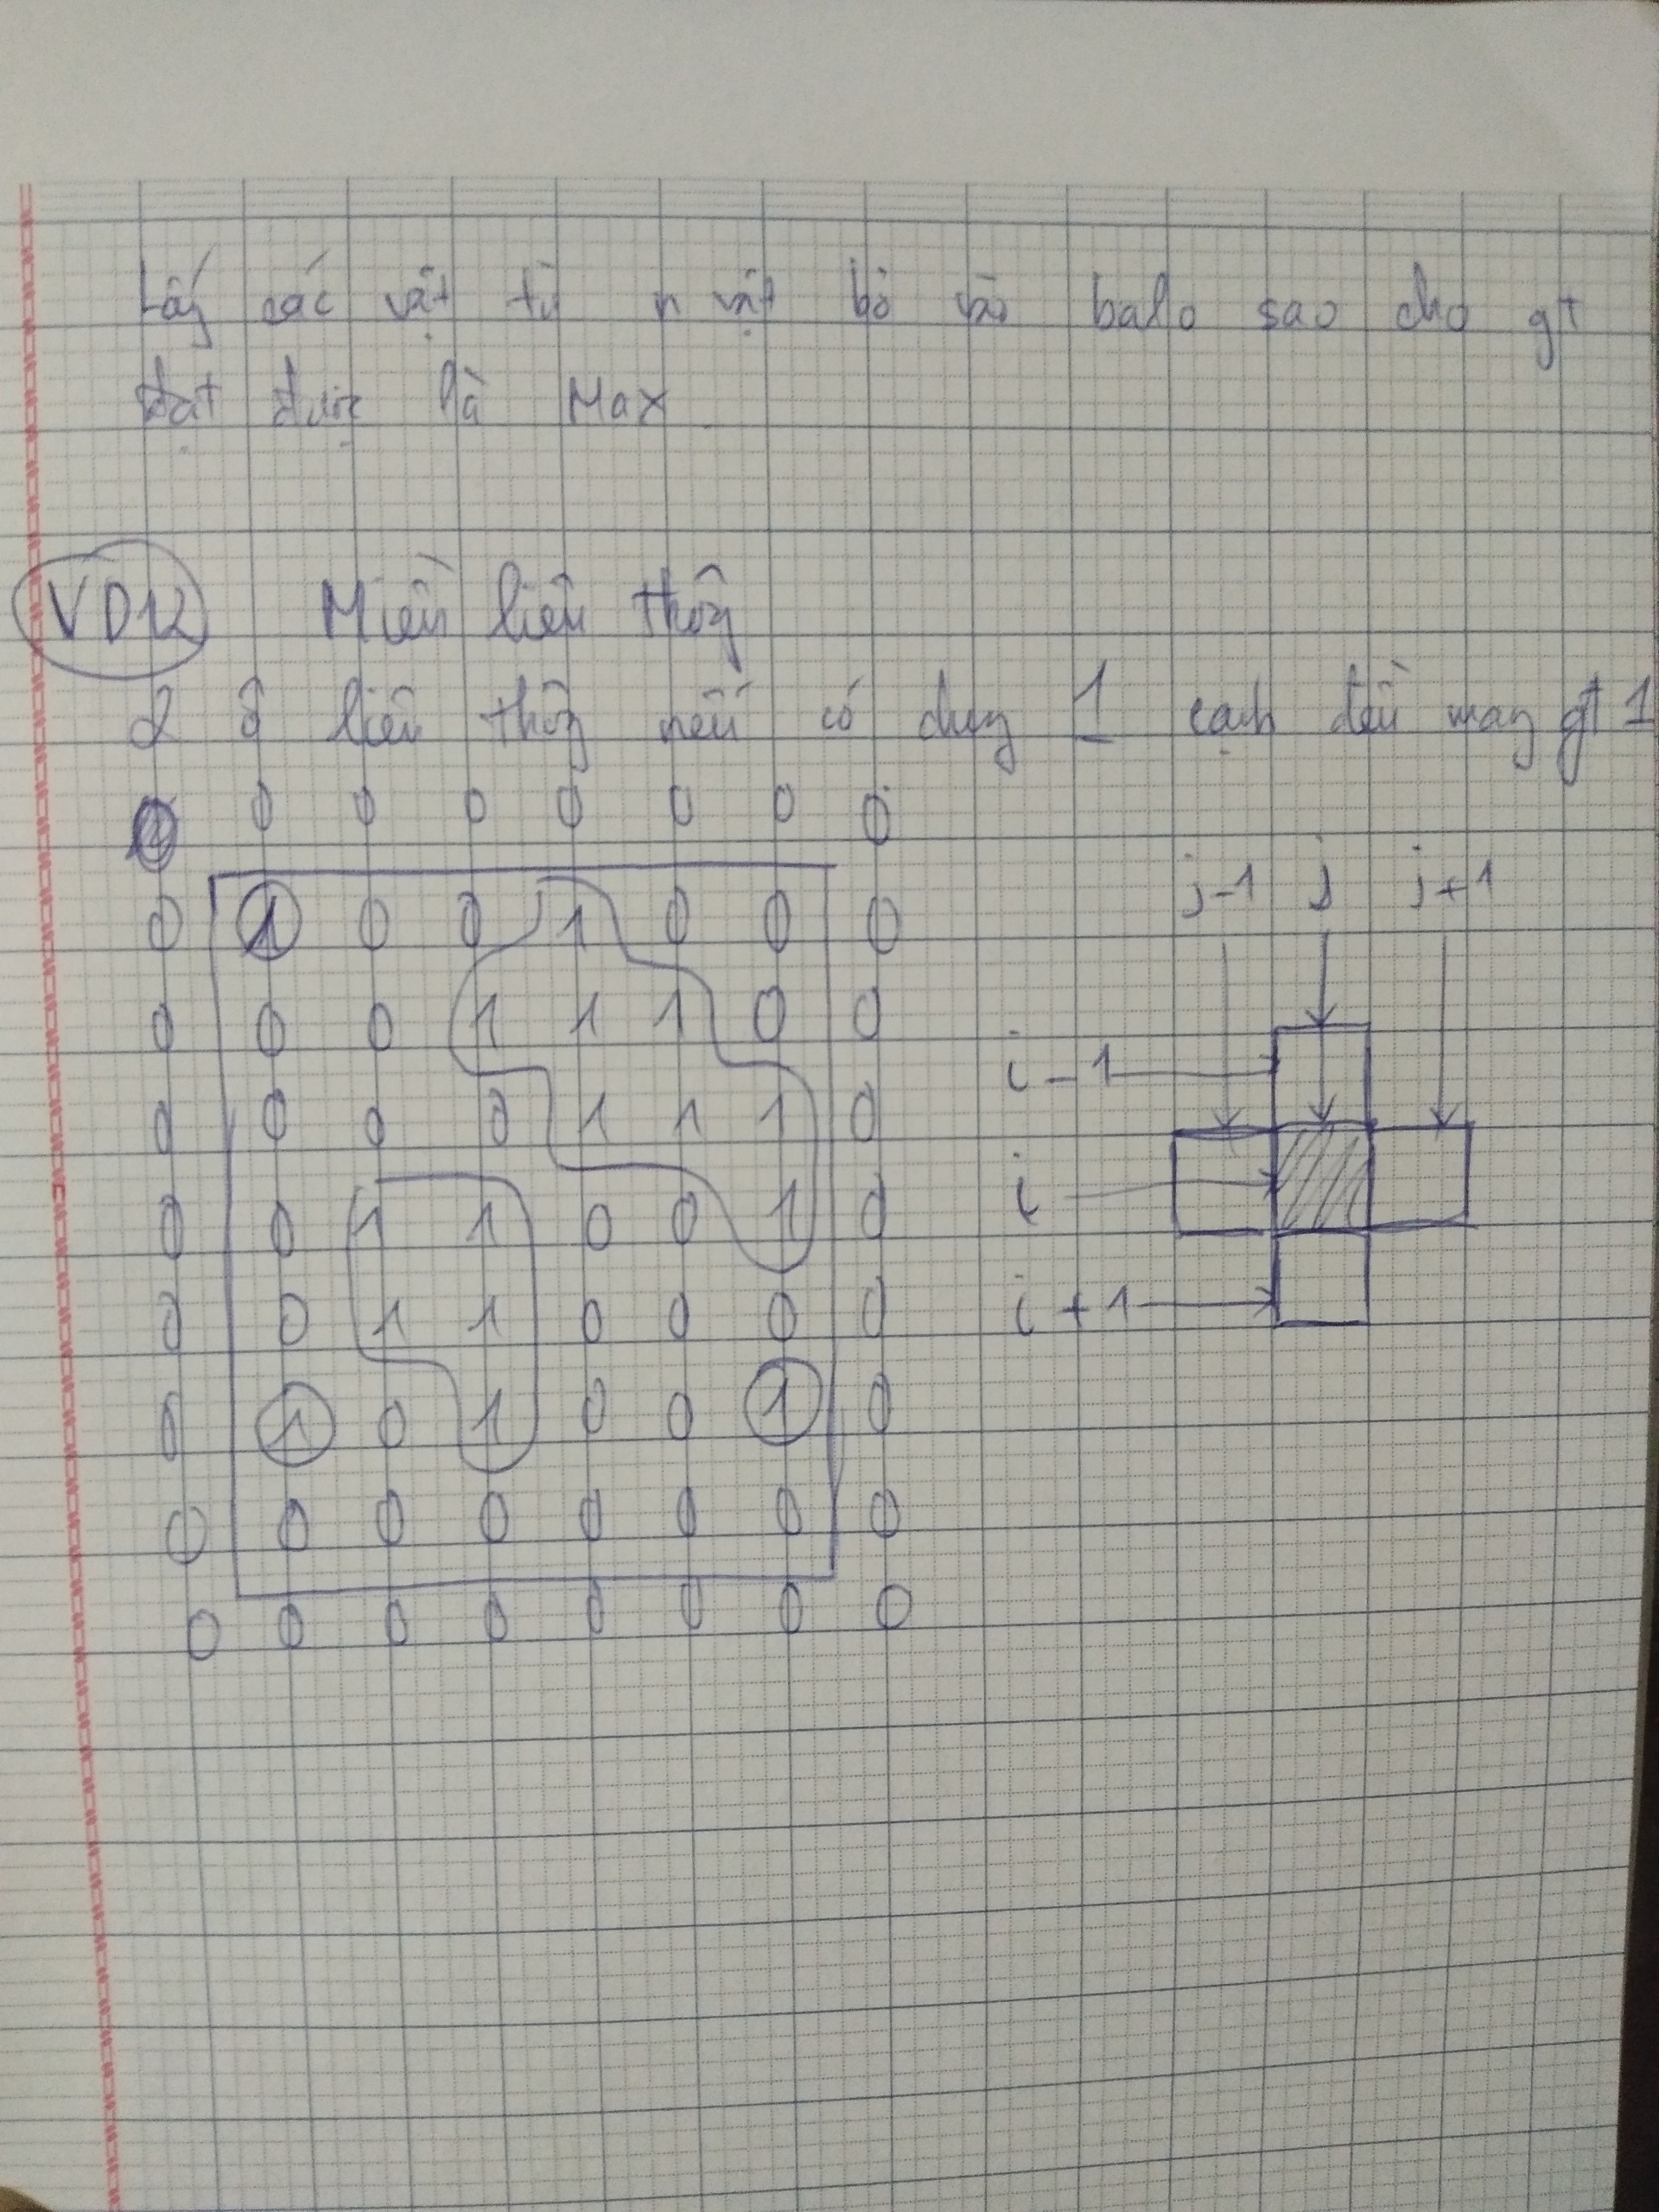 Lấy các vật từ n vật bỏ vào balo sao cho gt
đạt được là Max
VD12 Miền liên thông
2 ô liên thông nếu có chung 1 cạnh đều mang gt 1
0 0 0 0 0 0 0 0
0 1 0 0 1 0 0 0
0 0 0 1 1 1 0 0
0 0 0 0 1 1 1 0
0 0 1 1 0 0 1 0
0 0 1 1 0 0 0 0
0 1 0 1 0 0 1 0
0 0 0 0 0 0 0 0
0 0 0 0 0 0 0 0
j-1 j j+1
i-1
i
i+1